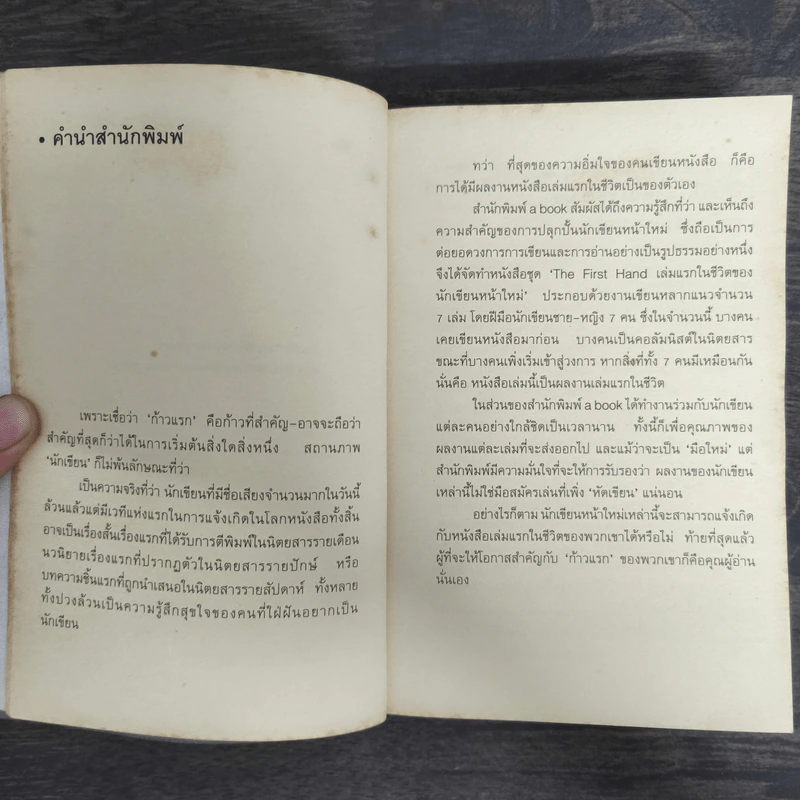 • คำนำสำนักพิมพ์
เพราะเชื่อว่า 'ก้าวแรก' คือก้าวที่สำคัญ–อาจจะถือว่า
สำคัญที่สุดก็ว่าได้ในการเริ่มต้นสิ่งใดสิ่งหนึ่ง สถานภาพ
'นักเขียน' ก็ไม่พ้นลักษณะที่ว่า
เป็นความจริงที่ว่า นักเขียนที่มีชื่อเสียงจำนวนมากในวันนี้
ล้วนแล้วแต่มีเวทีแห่งแรกในการแจ้งเกิดในโลกหนังสือทั้งสิ้น
อาจเป็นเรื่องสั้นเรื่องแรกที่ได้รับการตีพิมพ์ในนิตยสารรายเดือน
นวนิยายเรื่องแรกที่ปรากฏตัวในนิตยสารรายปักษ์ หรือ
บทความชิ้นแรกที่ถูกนำเสนอในนิตยสารรายสัปดาห์ ทั้งหลาย
ทั้งปวงล้วนเป็นความรู้สึกสุขใจของคนที่ใฝ่ฝันอยากเป็น
นักเขียน
ทว่า ที่สุดของความอิ่มใจของคนเขียนหนังสือ ก็คือ
การได้มีผลงานหนังสือเล่มแรกในชีวิตเป็นของตัวเอง
สำนักพิมพ์ a book สัมผัสได้ถึงความรู้สึกที่ว่า และเห็นถึง
ความสำคัญของการปลุกปั้นนักเขียนหน้าใหม่ ซึ่งถือเป็นการ
ต่อยอดวงการการเขียนและการอ่านอย่างเป็นรูปธรรมอย่างหนึ่ง
จึงได้จัดทำหนังสือชุด 'The First Hand เล่มแรกในชีวิตของ
นักเขียนหน้าใหม่' ประกอบด้วยงานเขียนหลากแนวจำนวน
7 เล่ม โดยฝีมือนักเขียนชาย–หญิง 7 คน ซึ่งในจำนวนนี้ บางคน
เคยเขียนหนังสือมาก่อน บางคนเป็นคอลัมนิสต์ในนิตยสาร
ขณะที่บางคนเพิ่งเริ่มเข้าสู่วงการ หากสิ่งที่ทั้ง 7 คนมีเหมือนกัน
นั่นคือ หนังสือเล่มนี้เป็นผลงานเล่มแรกในชีวิต
ในส่วนของสำนักพิมพ์ a book ได้ทำงานร่วมกับนักเขียน
แต่ละคนอย่างใกล้ชิดเป็นเวลานาน ทั้งนี้ก็เพื่อคุณภาพของ
ผลงานแต่ละเล่มที่จะส่งออกไป และแม้ว่าจะเป็น 'มือใหม่' แต่
สำนักพิมพ์มีความมั่นใจที่จะให้การรับรองว่า ผลงานของนักเขียน
เหล่านี้ไม่ใช่มือสมัครเล่นที่เพิ่ง 'หัดเขียน' แน่นอน
อย่างไรก็ตาม นักเขียนหน้าใหม่เหล่านี้จะสามารถแจ้งเกิด
กับหนังสือเล่มแรกในชีวิตของพวกเขาได้หรือไม่ ท้ายที่สุดแล้ว
ผู้ที่จะให้โอกาสสำคัญกับ 'ก้าวแรก' ของพวกเขาก็คือคุณผู้อ่าน
นั่นเอง